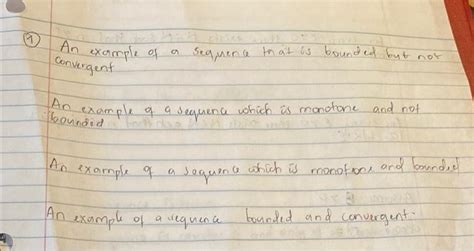 1
An example of a sequence that is bounded but not
convergent
An example of a sequence which is monotone and not
bounded
An example of a sequence which is monotone and bounded
An example of a sequence bounded and convergent.